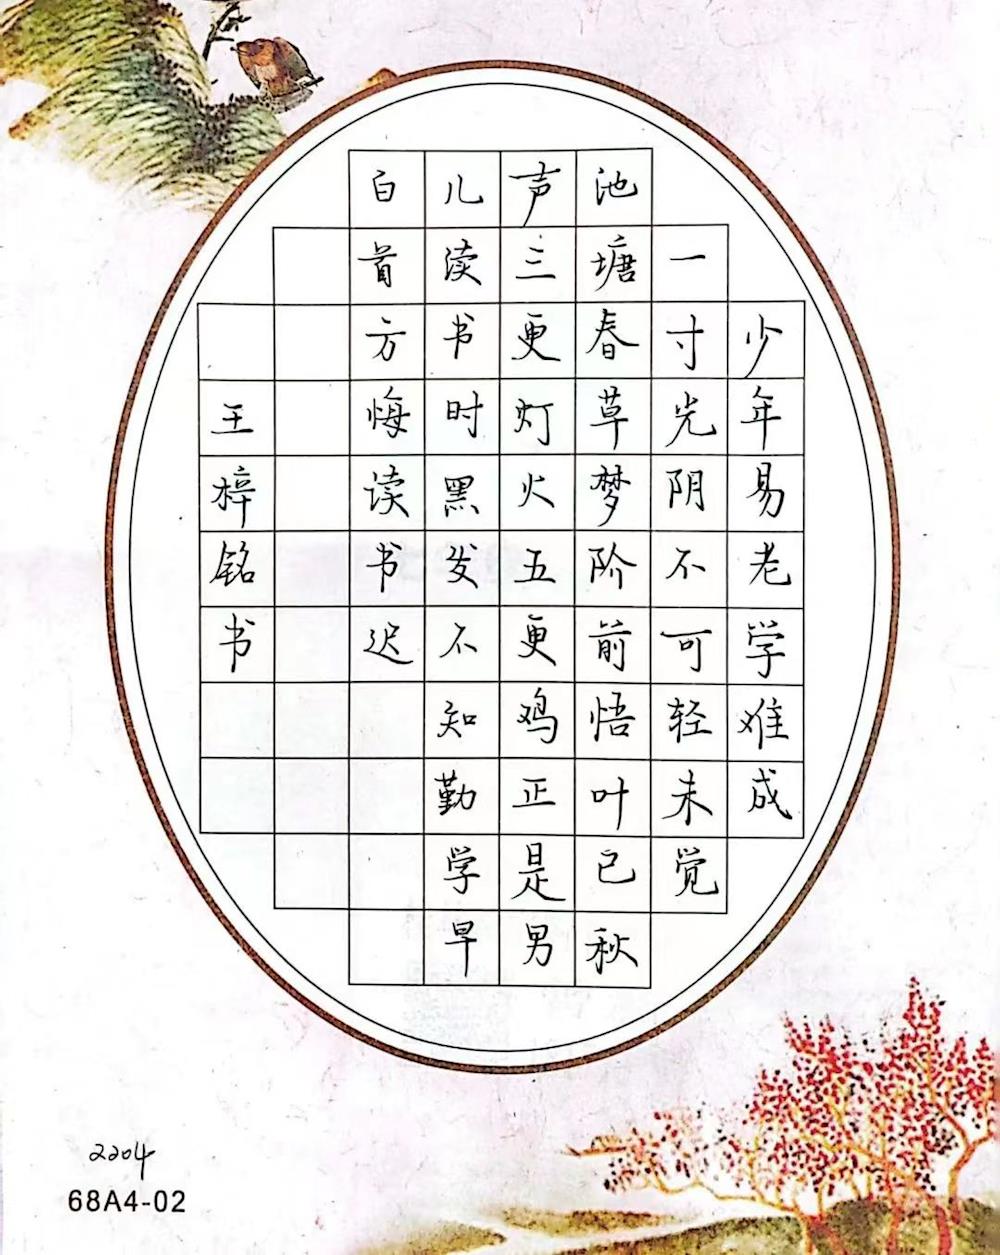 少年易老学难成
一寸光阴不可轻未觉
池塘春草梦阶前悟叶已秋
声三更灯火五更鸡正是男
儿读书时黑发不知勤学早
白首方悔读书迟
王梓铭书
2204
68A4-02